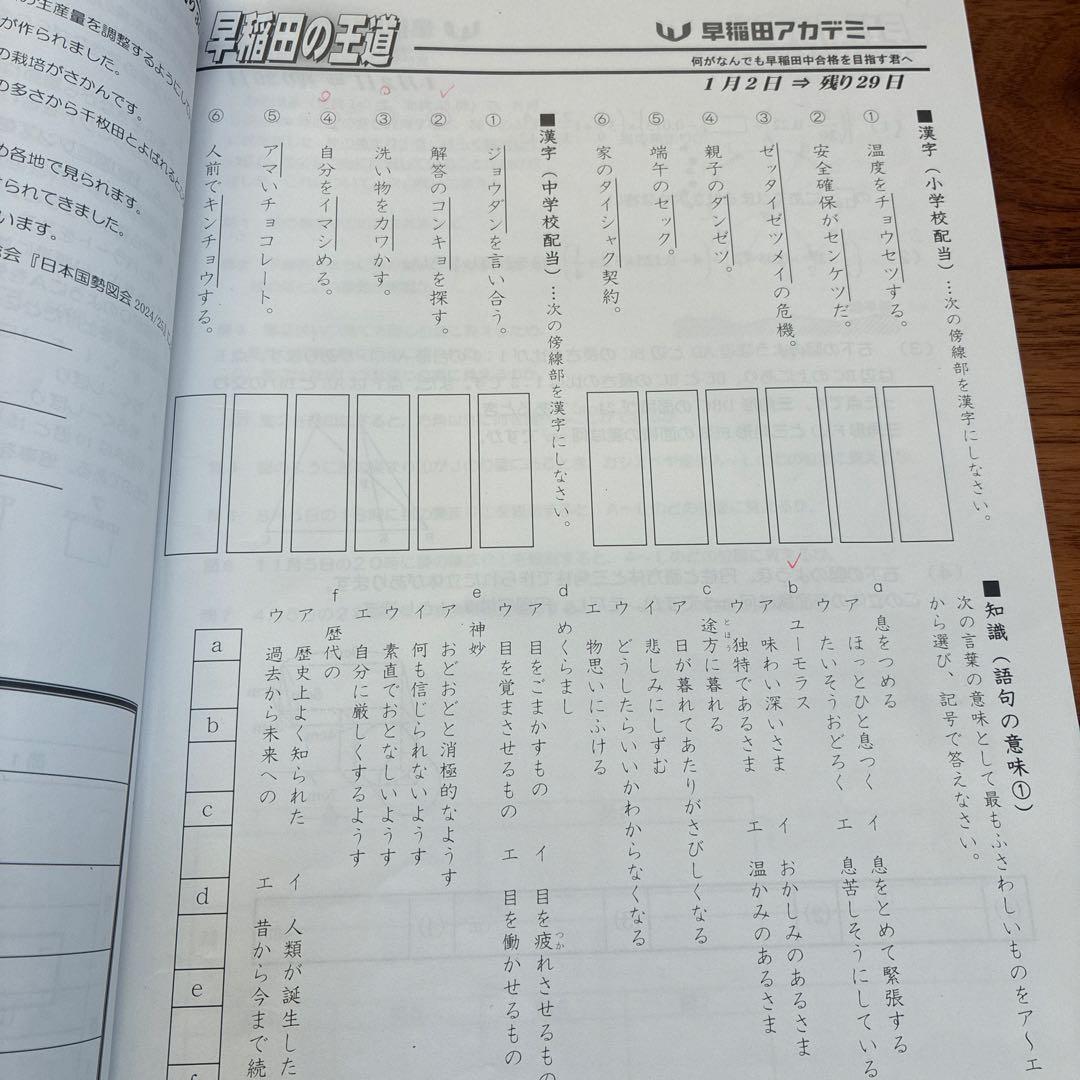 早稲田の王道
早稲田アカデミー
何がなんでも早稲田中合格を目指す君へ
1月2日 ⇒ 残り29日
■漢字（小学校配当）…次の傍線部を漢字にしなさい。
① 温度をチョウセツする。
② 安全確保がセンケツだ。
③ ゼッタイゼツメイの危機。
④ 親子のダンゼツ。
⑤ 端午のセック。
⑥ 家のタイシャク契約。
■漢字（中学校配当）…次の傍線部を漢字にしなさい。
① ジョウダンを言い合う。
② 解答のコンキョを探す。
③ 洗い物をカワかす。
④ 自分をイマシめる。
⑤ アマいチョコレート。
⑥ 人前でキンチョウする。
■知識（語句の意味①）
次の言葉の意味として最もふさわしいものをア〜エ
から選び、記号で答えなさい。
a 息をつめる
ア ほっとひと息つく イ 息をとめて緊張する
ウ たいそうおどろく エ 息苦しそうにしている
b ユーモラス
ア 味わい深いさま イ おかしみのあるさま
ウ 独特であるさま エ 温かみのあるさま
c 途方に暮れる
とほう
ア 日が暮れてあたりがさびしくなる
イ 悲しみにしずむ
ウ どうしたらいいかわからなくなる
エ 物思いにふける
d めくらまし
ア 目をごまかすもの イ 目を疲れさせるもの
つか
ウ 目を覚まさせるもの エ 目を働かせるもの
e 神妙
ア おどおどと消極的なようす
イ 何も信じられないようす
ウ 素直でおとなしいようす
エ 自分に厳しくするようす
f 歴代の
ア 歴史上よく知られた イ 人類が誕生した
ウ 過去から未来への エ 昔から今まで続
a
b
c
d
e
f
の生産量を調整するようにし
が作られました。
の栽培がさかんです。
の多さから千枚田とよばれると
め各地で見られます。
けられてきました。
います。
会『日本国勢図会 2024/25』